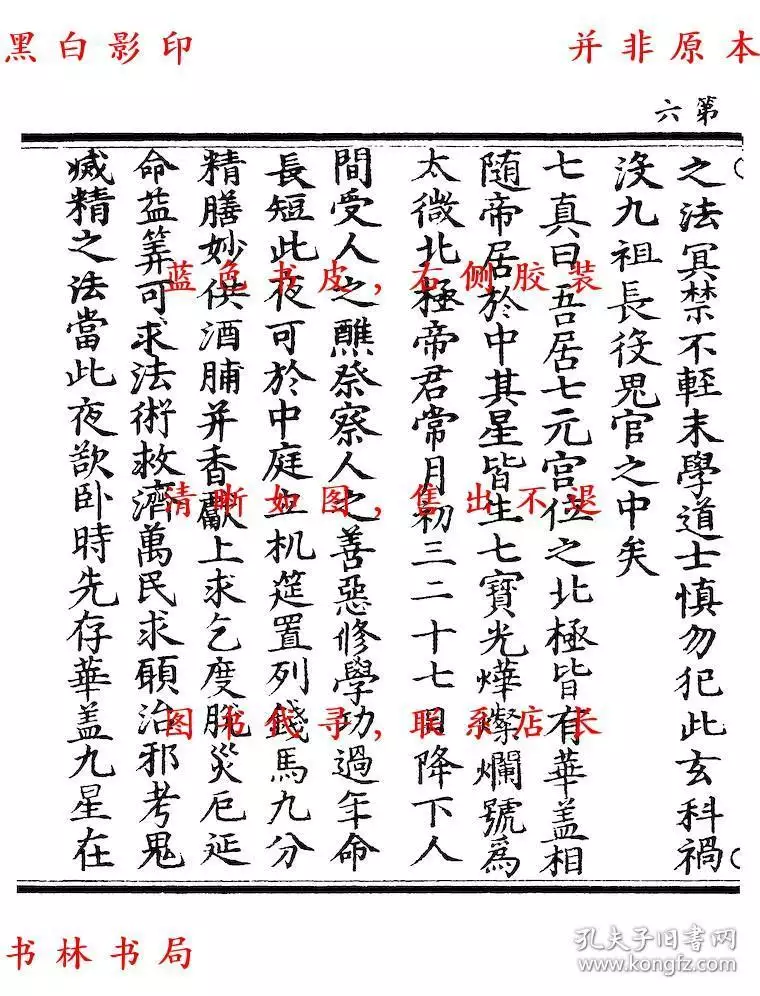 黑白影印
并非原本
第六
之法冥禁不輕末學道士慎勿犯此玄科禍
没九祖長役鬼官之中矣
七真曰吾居七元宫位之北極皆有華盖相
隨帝居於中其星皆生七寶光燁燦爛號爲
太微北極帝君常月初三二十七日降下人
間受人之醮祭察人之善惡修學功過年命
長短此夜可於中庭立机筵置列錢馬九分
精膳妙供酒脯并香獻上求乞度脱災厄延
命益筭可求法術救濟萬民求願治邪考鬼
滅精之法當此夜欲卧時先存華盖九星在
蓝色书皮，右侧胶装
清晰如图，售出不退
图书代寻，联系店长
书林书局
孔夫子旧书网
www.kongfz.com